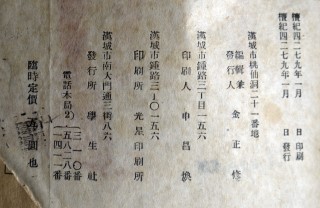 檀紀四二七九年一月 日 印刷
檀紀四二七九年一月 日 發行
漢城市桃仙洞二十一番地
編輯兼
發行人 金正修
漢城市鍾路三丁目一五六
印刷人 申昌煥
漢城市鍾路三ノ一五六
印刷所 光星印刷所
漢城市南大門通三街八六
發行所 學生社
電話本局(2)
三一一〇番
一五八二八番
二四一一番
臨時定價 圓也